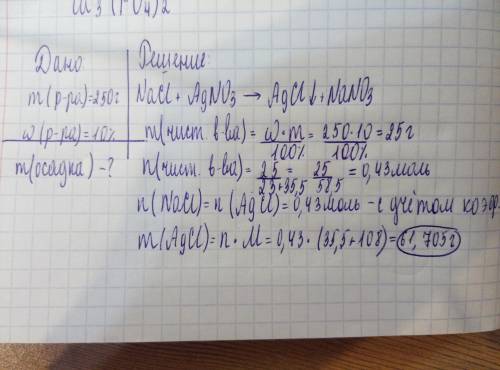 Ca3(PO4)2
Дано
m(р-ра)=250г
ω(р-ра)=10%
m(осадка)-?
Решение:
NaCl + AgNO3 → AgCl↓ + NaNO3
m(чист. в-ва) = ω·m/100% = 250·10/100% = 25г
n(чист. в-ва) = 25/25+35,5 = 25/58,5 = 0,43моль
n(NaCl) = n(AgCl) = 0,43моль - с учётом коэф.
m(AgCl) = n·M = 0,43·(35,5+108) = 61,705г